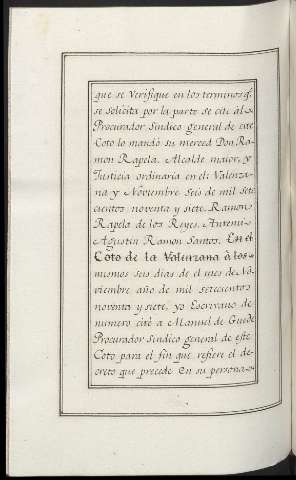 que se verifique en los terminos q.e
se solicita por la parte se cite al
Procurador Sindico general de este
Coto lo mandó su merced Don Ra-
mon Rapela, Alcalde maior, y
Justicia ordinaria en el; Valenza-
na y Noviembre Seis de mil sete
cientos noventa y siete, Ramon
Rapela de los Reyes, Antemi,
Agustin Ramon Santos. En el
Coto de la Valenzana á los
mismos seis dias de el mes de No-
viembre año de mil setecientos
noventa y siete, yo Escrivano de
numero cité a Manuel de Guede
Procurador Sindico general de este
Coto para el fin que refiere el de-
creto que precede En su persona